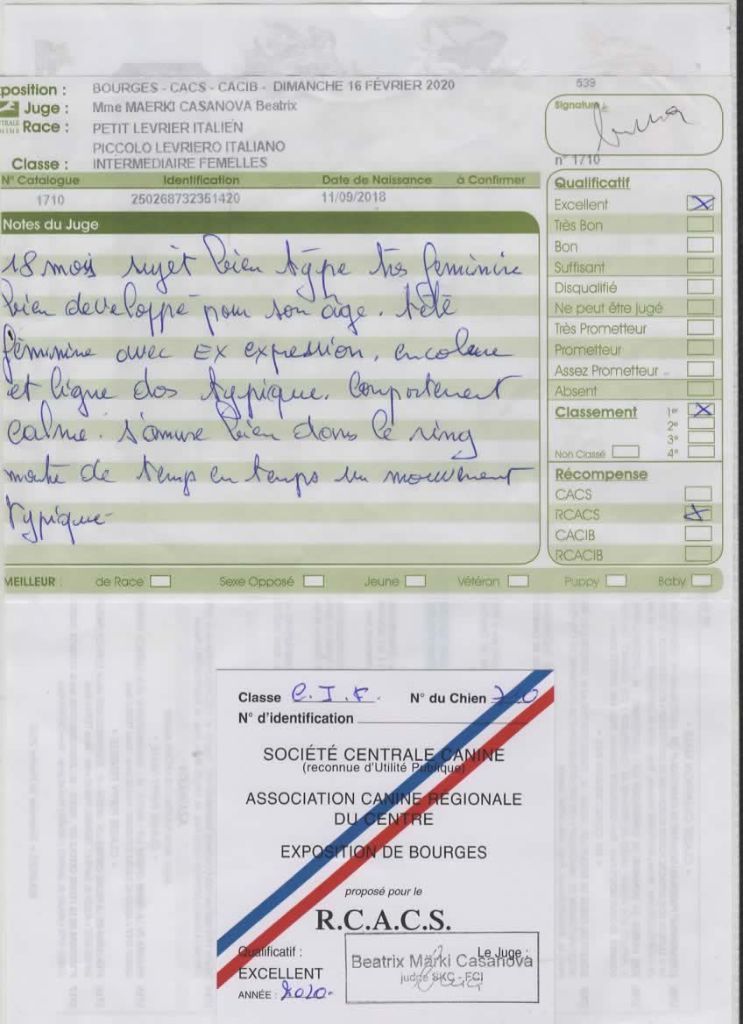 position : BOURGES - CACS - CACIB - DIMANCHE 16 FÉVRIER 2020
539
Juge : Mme MAERKI CASANOVA Beatrix
Race : PETIT LEVRIER ITALIEN
PICCOLO LEVRIERO ITALIANO
Classe : INTERMEDIAIRE FEMELLES
Signature
n° 1710
N° Catalogue Identification Date de Naissance à Confirmer
1710 250268732351420 11/09/2018
Notes du Juge
18 mois sujet bien type très feminine
bien developpé pour son âge. tête
féminine avec EX expression, encolure
et ligne dos typique. Comportement
calme. s'amuse bien dans le ring
montre de temp en temps un mouvement
typique-
Qualificatif
Excellent X
Très Bon
Bon
Suffisant
Disqualifié
Ne peut être jugé
Très Prometteur
Prometteur
Assez Prometteur
Absent
Classement 1er X
2e
3e
Non Classé 4e
Récompense
CACS
RCACS X
CACIB
RCACIB
MEILLEUR : de Race Sexe Opposé Jeune Vétéran Puppy Baby
Classe C. I. F. N° du Chien
N° d'identification
SOCIÉTÉ CENTRALE CANINE
(reconnue d'Utilité Publique)
ASSOCIATION CANINE RÉGIONALE
DU CENTRE
EXPOSITION DE BOURGES
proposé pour le
R.C.A.C.S.
Qualificatif :
EXCELLENT
ANNÉE : 2020-
Le Juge :
Beatrix Märki Casanova
judge SKC - FCI